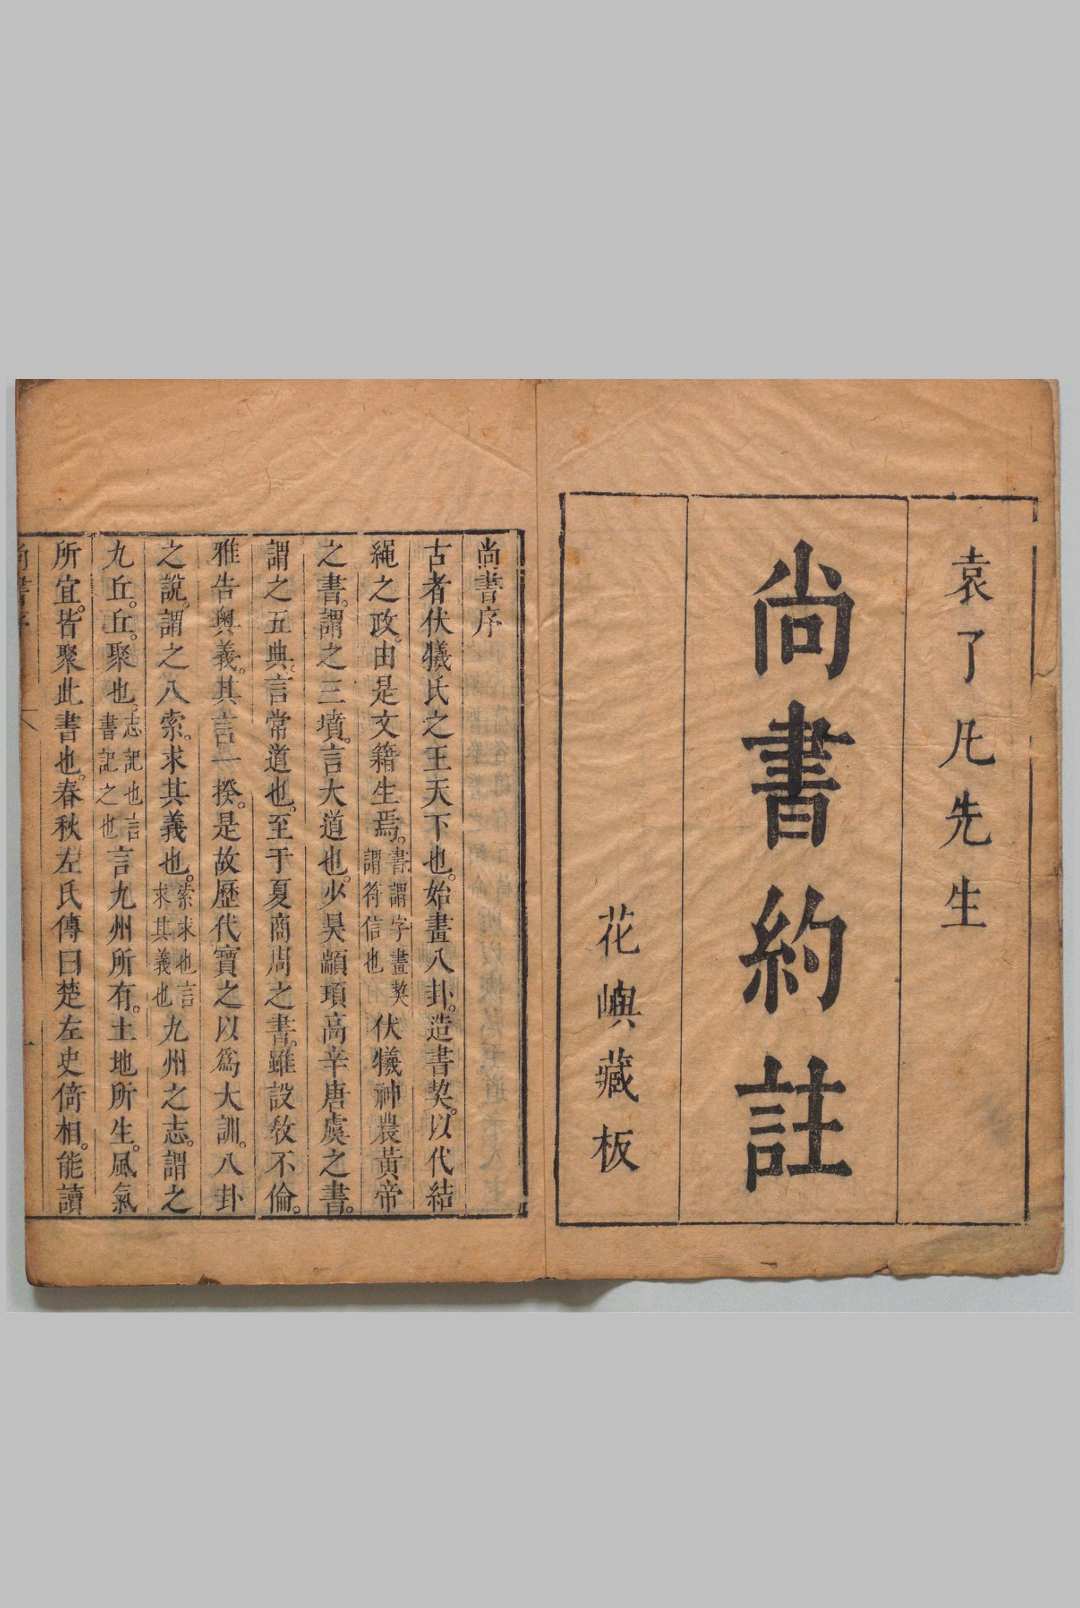 袁了凡先生
尚書約註
花嶼藏板
尚書序
古者伏犧氏之王天下也。始畫八卦。造書契。以代結
繩之政。由是文籍生焉。書謂字畫契謂符信也伏犧神農黃帝
之書。謂之三墳。言大道也。少昊顓頊高辛唐虞之書。
謂之五典。言常道也。至于夏商周之書。雖設敎不倫。
雅告奧義。其言一揆。是故歷代寶之以爲大訓。八卦
之說。謂之八索。求其義也。索求也言求其義也九州之志。謂之
九丘。丘。聚也。志記也言書記之也言九州所有。土地所生。風氣
所宜。皆聚此書也。春秋左氏傳曰楚左史倚相。能讀
尚書序